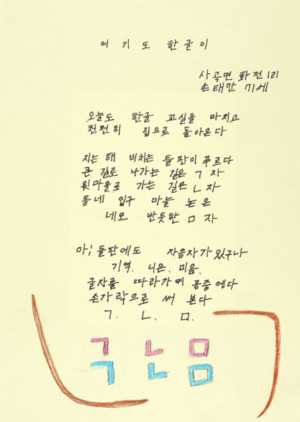 여기도 한글이
사곡면 화전 1리
손태만 71세
오늘도 한글 교실을 마치고
천천히 집으로 돌아온다
지는 해 비치는 들판이 푸르다
큰 길로 나가는 길은 ㄱ 자
윗마을로 가는 길은 ㄴ 자
동네 입구 마늘 논은
네모 반듯한 ㅁ 자
아! 들판에도 자음자가 있구나
기역. 니은. 미음.
글자를 따라가며 공중에다
손가락으로 써 본다
ㄱ. ㄴ. ㅁ.
ㄱ ㄴ ㅁ
ㄱ ㄴ ㅁ